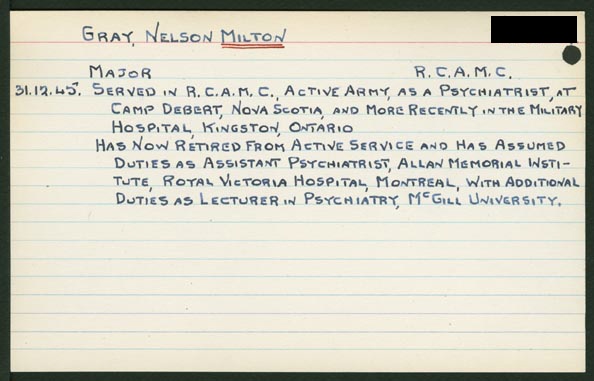 GRAY, NELSON MILTON
MAJOR R.C.A.M.C.
31.12.45. SERVED IN R.C.A.M.C., ACTIVE ARMY, AS A PSYCHIATRIST, AT
CAMP DEBERT, NOVA SCOTIA, AND MORE RECENTLY IN THE MILITARY
HOSPITAL, KINGSTON, ONTARIO
HAS NOW RETIRED FROM ACTIVE SERVICE AND HAS ASSUMED
DUTIES AS ASSISTANT PSYCHIATRIST, ALLAN MEMORIAL INSTI-
TUTE, ROYAL VICTORIA HOSPITAL, MONTREAL, WITH ADDITIONAL
DUTIES AS LECTURER IN PSYCHIATRY, McGILL UNIVERSITY.